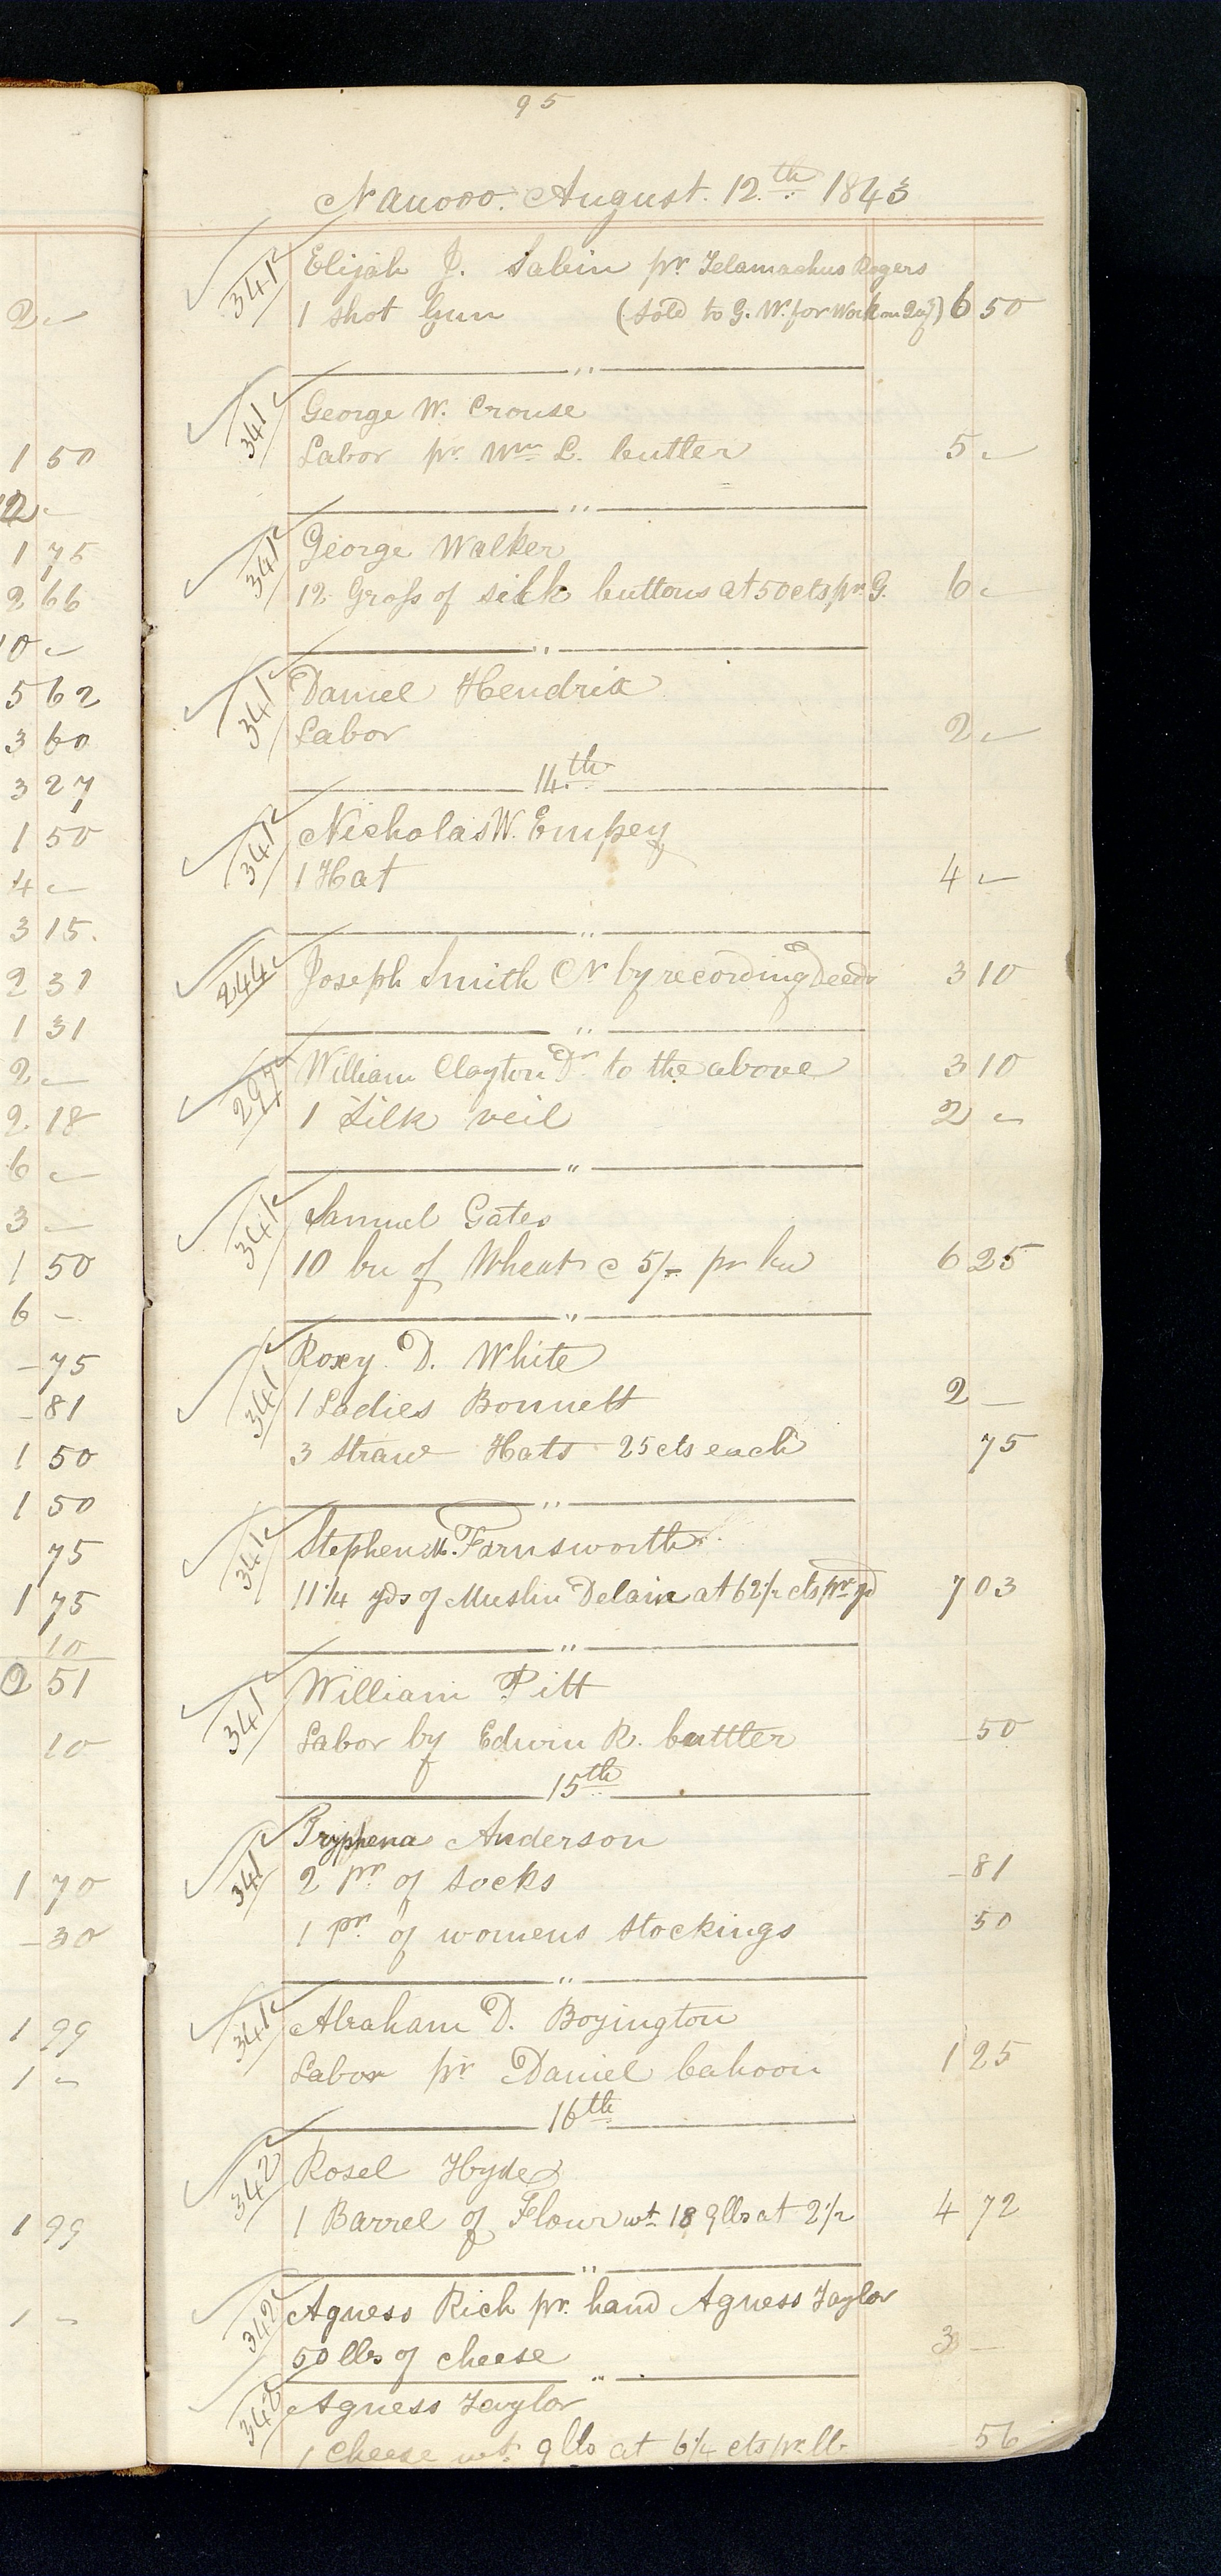 95
Nauvoo. August. 12.th 1843
2 -
1 50
12 -
1 75
2 66
10 -
5 62
3 60
3 27
1 50
4 -
3 15.
2 31
1 31
2 -
2. 18
6 -
3 -
1 50
6 -
- 75
- 81
1 50
1 50
75
1 75
10
2 51
10
1 70
- 30
1 99
1 -
1 99
1 -
341 Elijah J. Sabin pr Telamachus Rogers
1 shot Gun (Sold to G. W. for Work on 6 50
"
341 George W. Crouse
Labor pr. Wm L. Cutler 5 -
"
341 George Walker
12 Gross of silk buttons at 50 cts pr G. 6 -
"
341 Daniel Hendrix
Labor 2 -
14.th
341 Nicholas W. Empey
1 Hat 4 -
"
244 Joseph Smith Cr by recording Deeds 3 10
"
297 William Clayton Dr to the above 3 10
1 Silk veil 2 -
"
341 Samuel Gates
10 bu of Wheat @ 5/- pr bu 6 25
"
341 Roxy D. White
1 Ladies Bonnett 2 -
3 Straw Hats 25 cts each 75
"
341 Stephen M. Farnsworth
11 1/4 yds of Muslin Delain at 62 1/2 cts pr yd 7 03
"
341 William Pitt
Labor by Edwin R. Cuttler - 50
15th
341 Tryphena Anderson
2 pr of Socks - 81
1 pr. of womens Stockings 50
"
341 Abraham D. Boyington
Labor pr Daniel Cahoon 1 25
16th
342 Rosel Hyde
1 Barrel of Flour wt 189 lbs at 2 1/2 4 72
"
342 Agness Rich pr. hand Agness Taylor
50 lbs of cheese 3 -
"
342 Agness Taylor
1 Cheese wt. 9 lbs at 6 1/4 cts pr. lb. 56